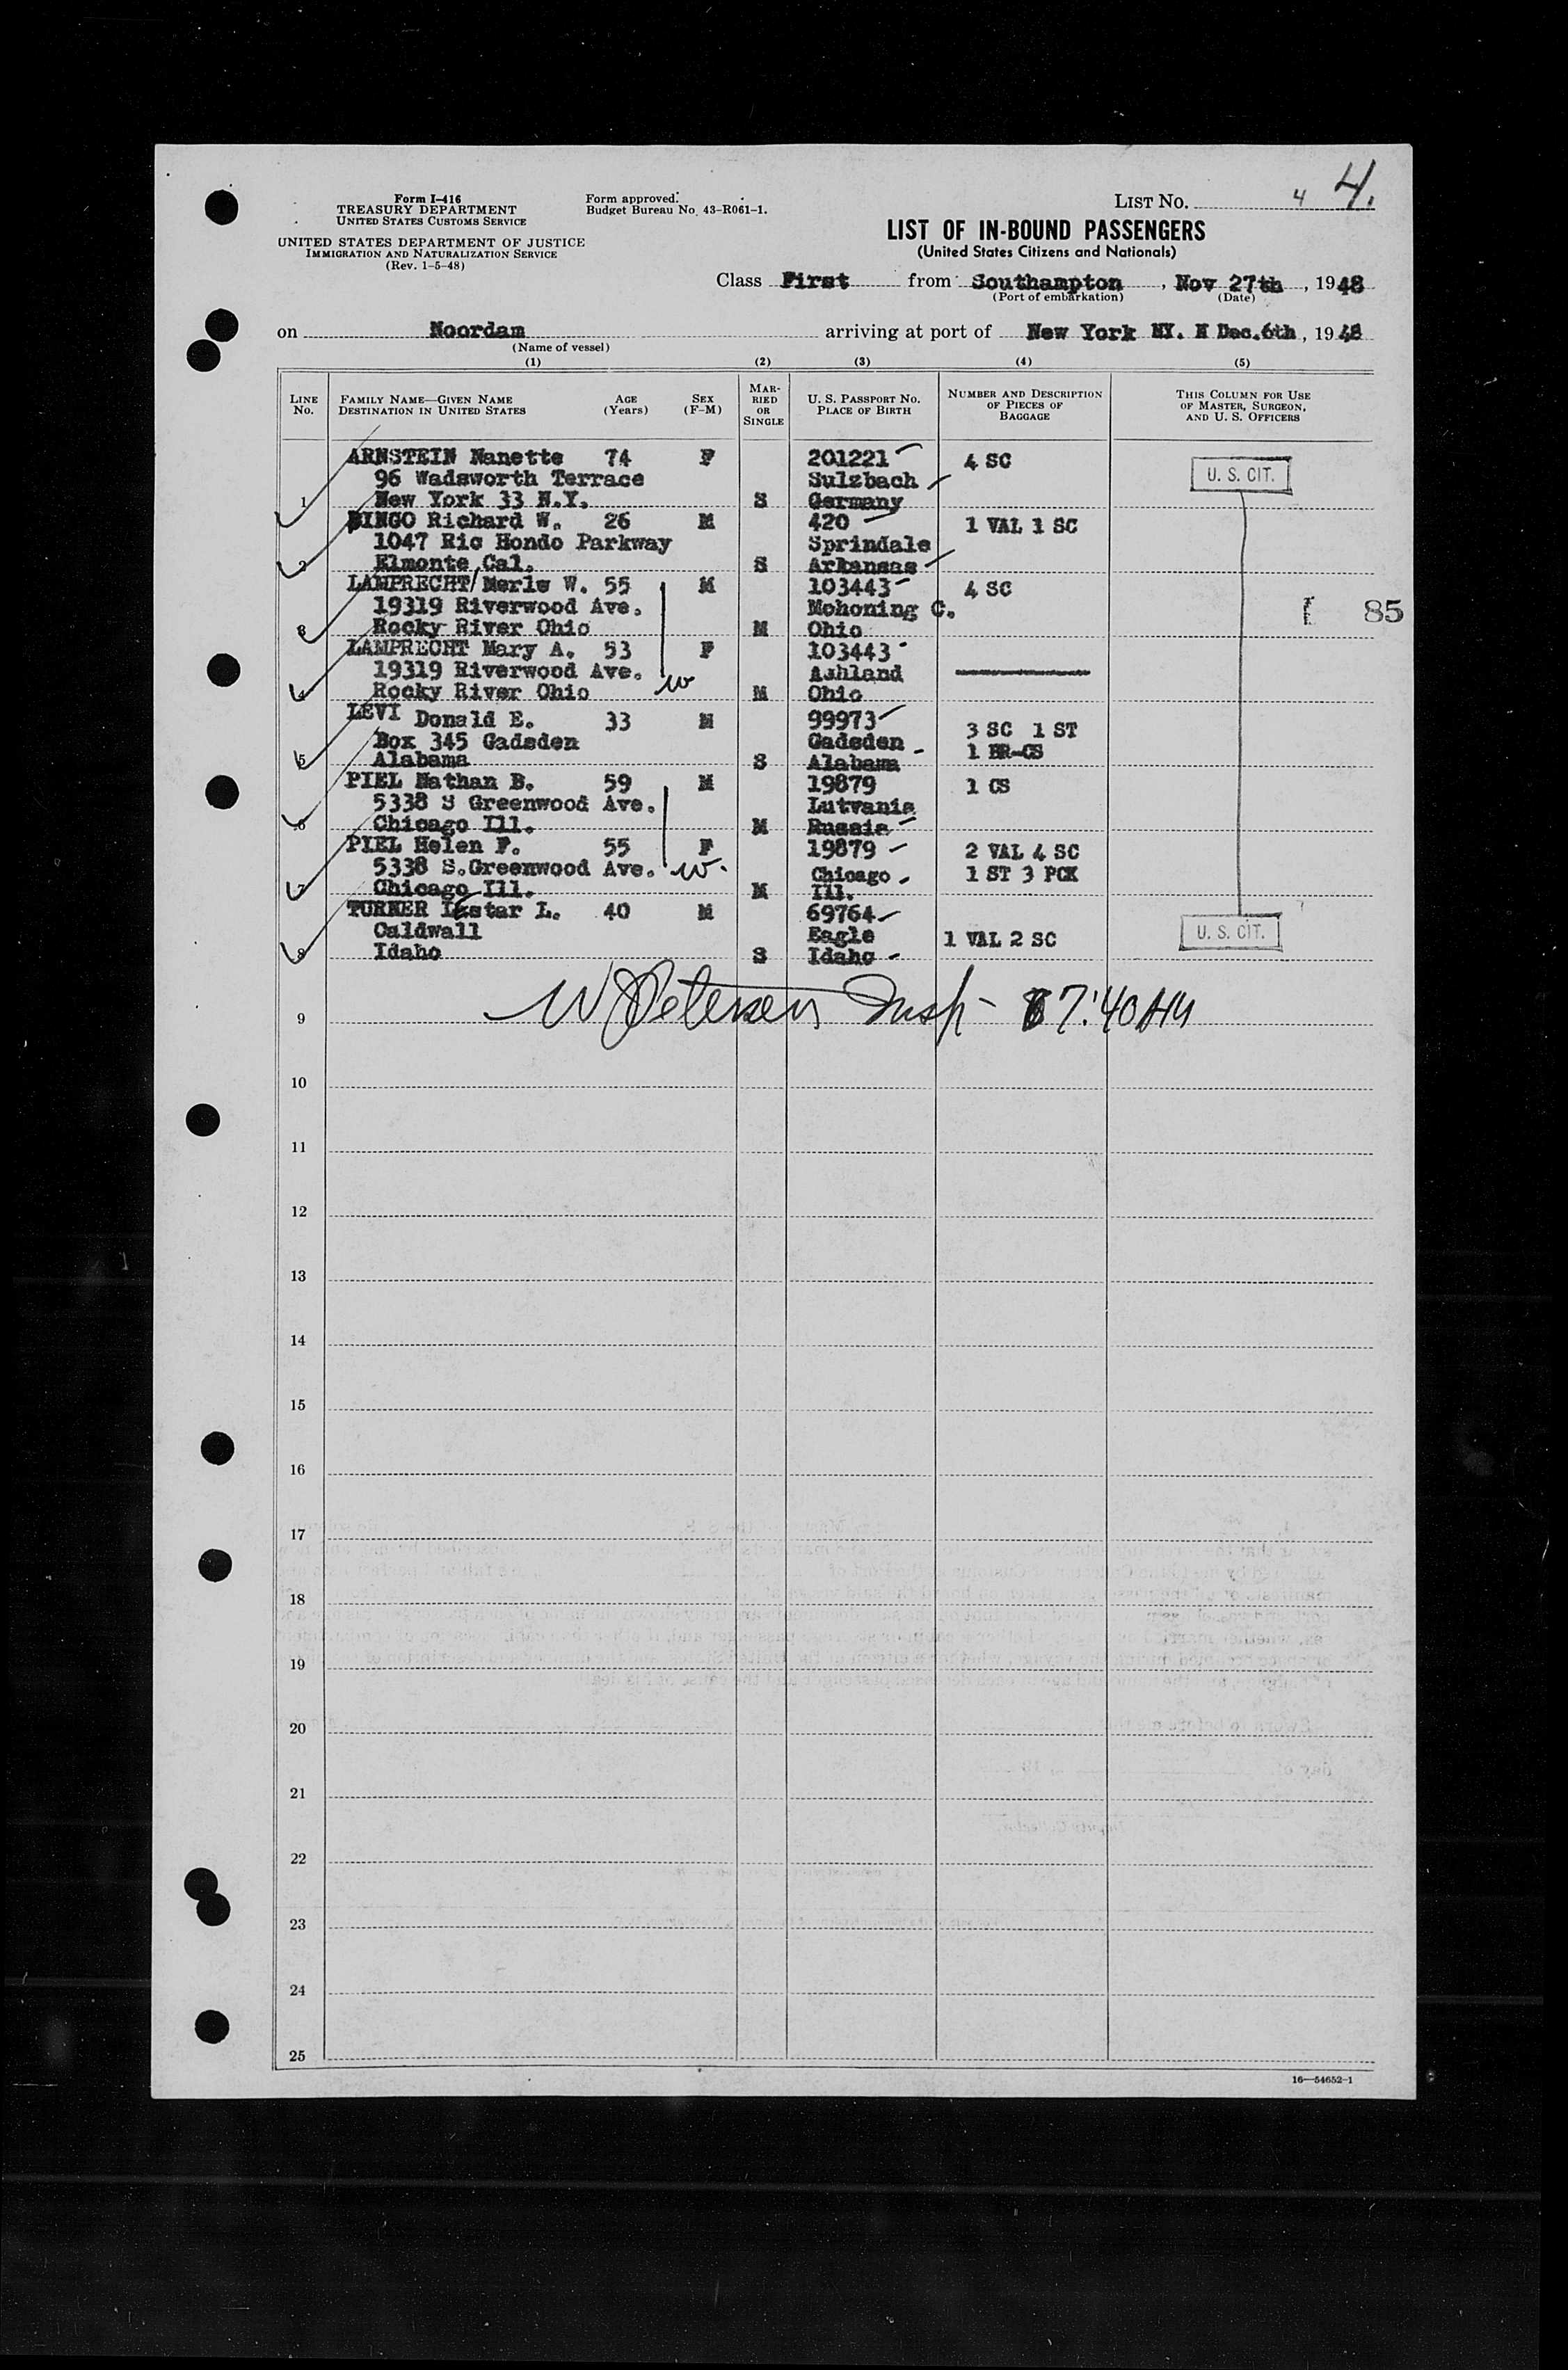 Form I-416
TREASURY DEPARTMENT
UNITED STATES CUSTOMS SERVICE
UNITED STATES DEPARTMENT OF JUSTICE
IMMIGRATION AND NATURALIZATION SERVICE
(Rev. 1-5-48)
Form approved.
Budget Bureau No. 43-R061-1.
LIST NO. 4 4.
LIST OF IN-BOUND PASSENGERS
(United States Citizens and Nationals)
Class First from Southampton, Nov 27th, 1948
(Port of embarkation) (Date)
on Noordam arriving at port of New York NY. N Dec.6th, 1948
(Name of vessel)
(1) (2) (3) (4) (5)
LINE No. FAMILY NAME—GIVEN NAME DESTINATION IN UNITED STATES AGE (Years) SEX (F-M) MARRIED OR SINGLE U. S. PASSPORT NO. PLACE OF BIRTH NUMBER AND DESCRIPTION OF PIECES OF BAGGAGE THIS COLUMN FOR USE OF MASTER, SURGEON, AND U. S. OFFICERS
ARNSTEIN Nanette 74 F 201221 4 SC U. S. CIT.
96 Wadsworth Terrace Sulzbach
1 New York 33 N.Y. S Germany
BINGO Richard W. 26 M 420 1 VAL 1 SC
1047 Rio Hondo Parkway Sprindale
2 Elmonte Cal. S Arkansas
LAMPRECHT Merle W. 55 M 103443 4 SC
19319 Riverwood Ave. Mohoning C. 85
3 Rocky River Ohio M Ohio
LAMPRECHT Mary A. 53 F 103443
19319 Riverwood Ave. Ashland
4 Rocky River Ohio w M Ohio
LEVI Donald E. 33 M 99973 3 SC 1 ST
Box 345 Gadsden Gadsden 1 BR-CS
5 Alabama S Alabama
PIEL Nathan B. 59 M 19879 1 CS
5338 S Greenwood Ave. Lutvania
6 Chicago Ill. M Russia
PIEL Helen F. 55 F 19879 2 VAL 4 SC
5338 S.Greenwood Ave. w. Chicago 1 ST 3 PCK
7 Chicago Ill. M Ill.
TURNER Lester L. 40 M 69764
Caldwall Eagle 1 VAL 2 SC U. S. CIT.
8 Idaho S Idaho
9 W Petersen Insp - 7:40 AM
10
11
12
13
14
15
16
17
18
19
20
21
22
23
24
25
16—54652-1